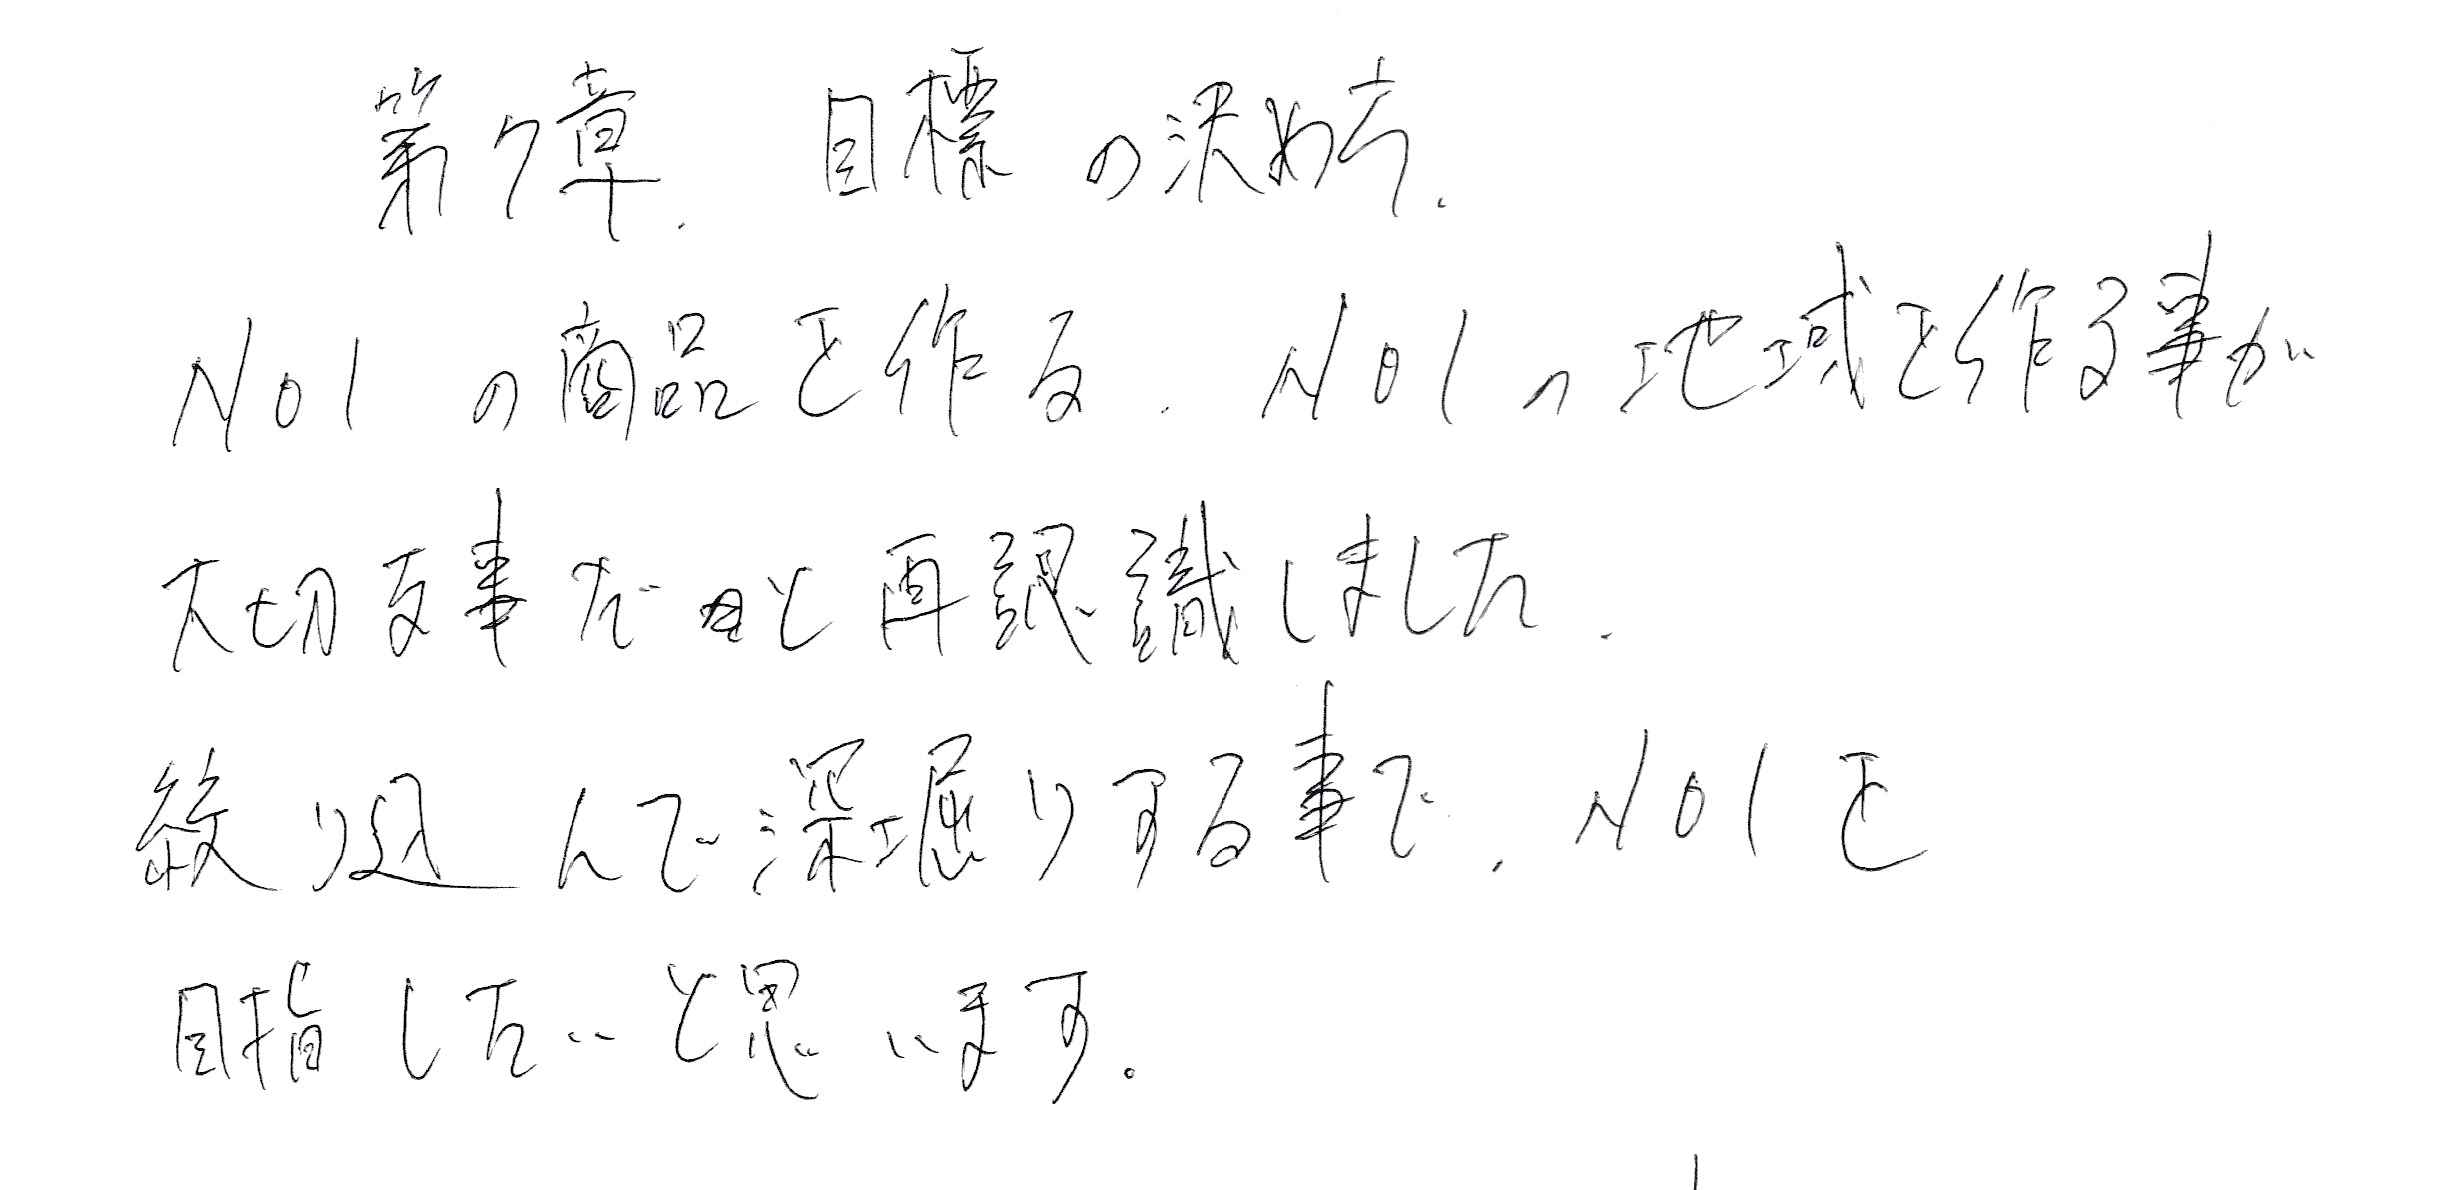 第7章. 目標の決め方.
NO1の商品を作る. NO1の地域を作る事が
大切な事だと再認識しました.
絞り込んで深堀りする事で, NO1を
目指したいと思います。